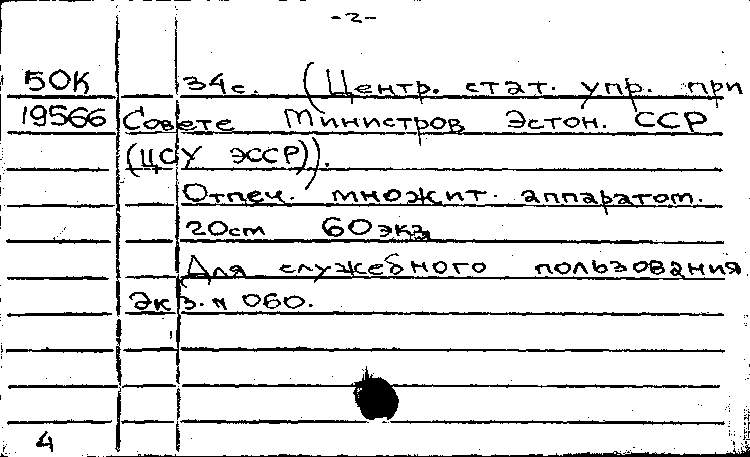 -2-
50К 34с. (Центр. стат. упр. при
19566 Совете Министров Эстон. ССР
(ЦСУ ЭССР)).
Отпеч. множит. аппаратом.
20см 60экз
Для служебного пользования
Экз. № 060.
4